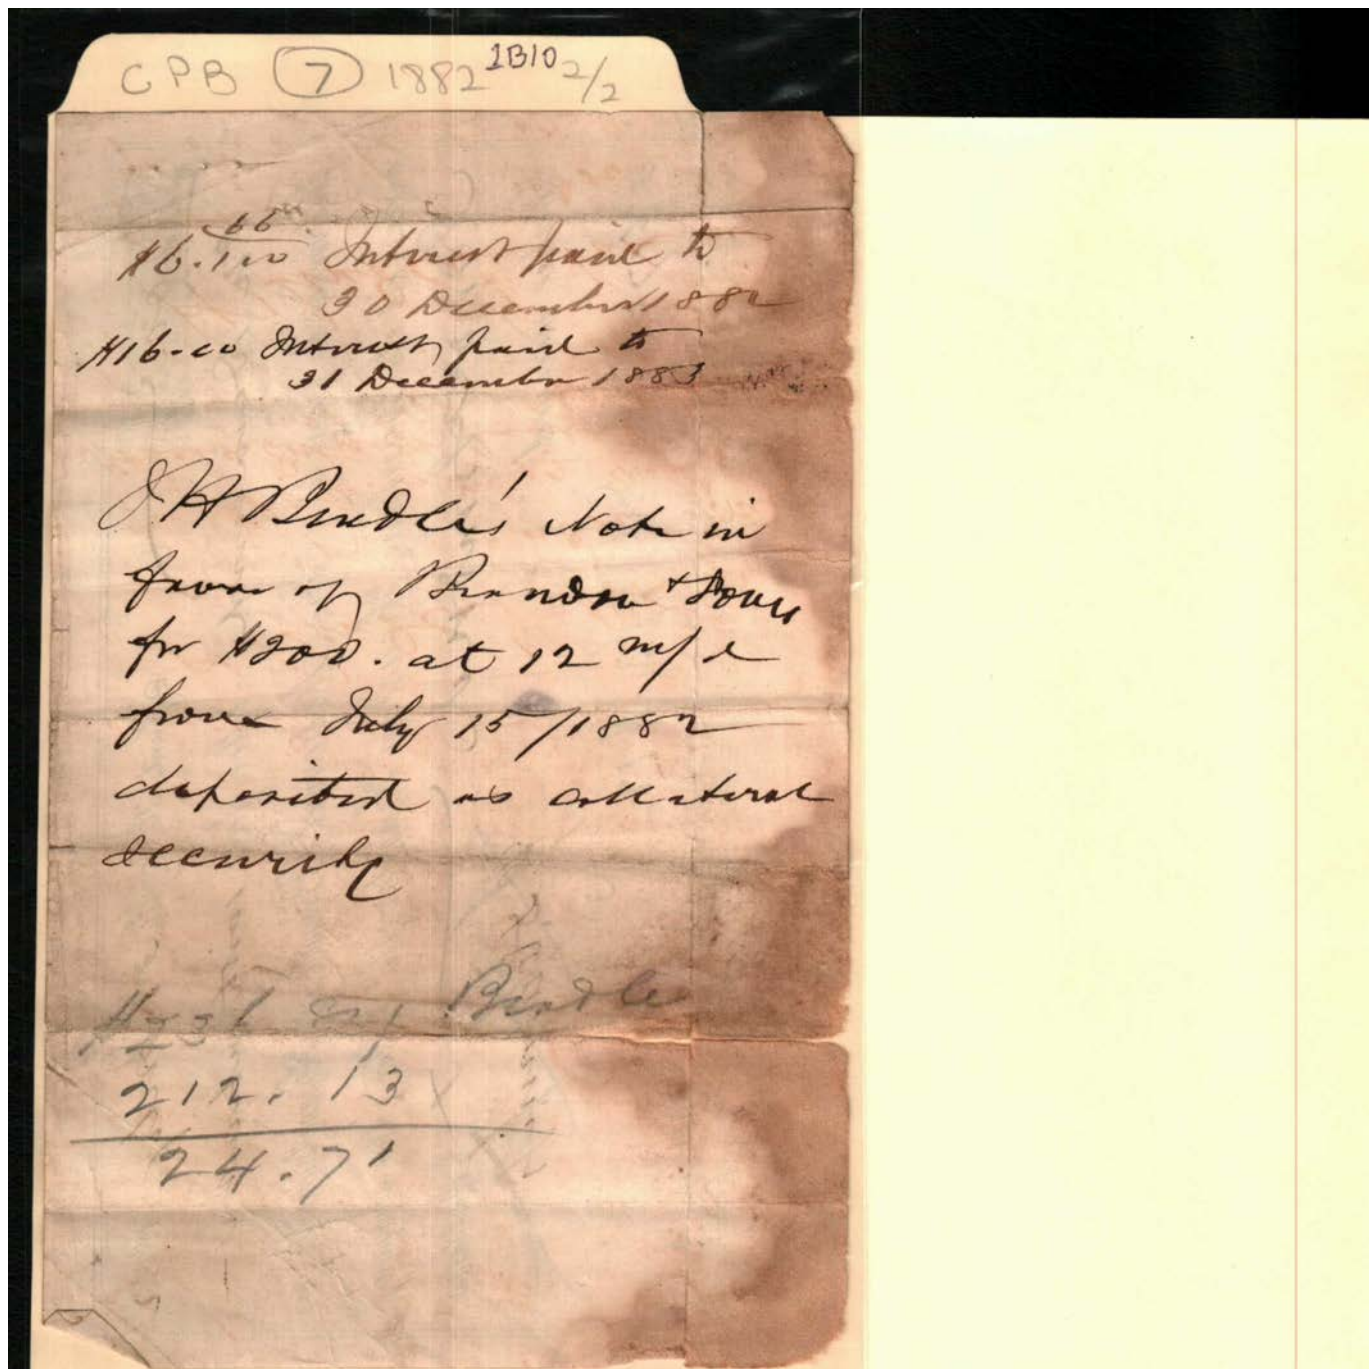 CPB 7 1882 1B10 2/2
$6. 66/100 Interest paid to
30 December 1882
$16-00 Interest paid to
31 December 1883
J H Beadle's Note in
favor of &
for $200. at 12 m/d
from July 15/1882
deposited as collateral
security
Beadle
212. 13
24.71